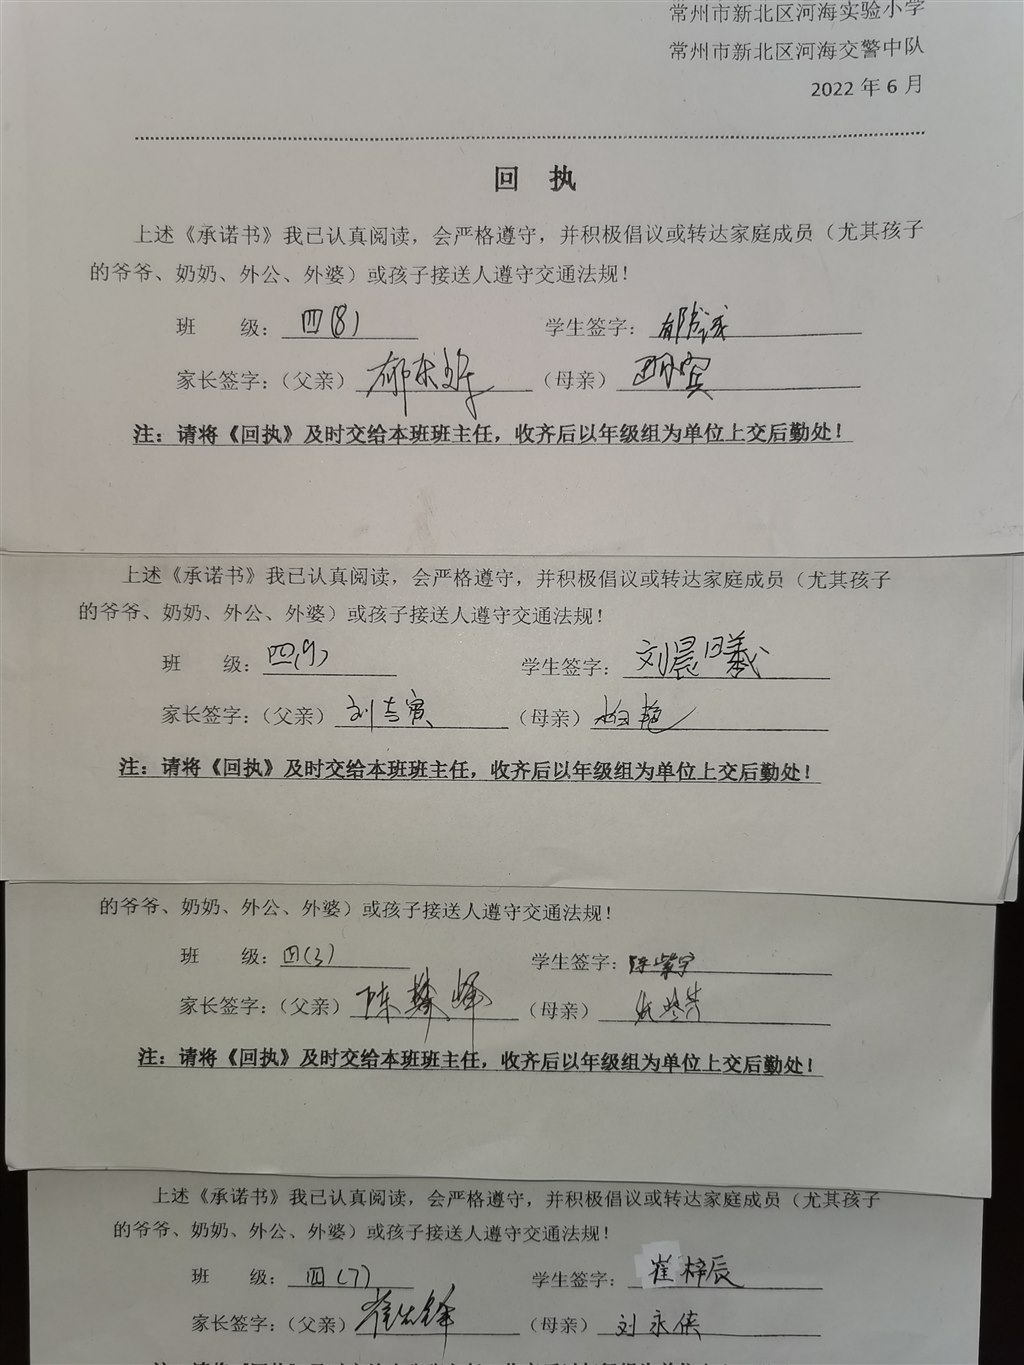 常州市新北区河海实验小学
常州市新北区河海交警中队
2022 年 6 月
回 执
上述《承诺书》我已认真阅读，会严格遵守，并积极倡议或转达家庭成员（尤其孩子
的爷爷、奶奶、外公、外婆）或孩子接送人遵守交通法规！
班 级：四(8) 学生签字：郁
家长签字：（父亲）郁 （母亲）
注：请将《回执》及时交给本班班主任，收齐后以年级组为单位上交后勤处！
上述《承诺书》我已认真阅读，会严格遵守，并积极倡议或转达家庭成员（尤其孩子
的爷爷、奶奶、外公、外婆）或孩子接送人遵守交通法规！
班 级：四(9) 学生签字：刘晨曦
家长签字：（父亲）刘志寅 （母亲）杨艳
注：请将《回执》及时交给本班班主任，收齐后以年级组为单位上交后勤处！
的爷爷、奶奶、外公、外婆）或孩子接送人遵守交通法规！
班 级：四(3) 学生签字：陈紫宇
家长签字：（父亲）陈 峰 （母亲）
注：请将《回执》及时交给本班班主任，收齐后以年级组为单位上交后勤处！
上述《承诺书》我已认真阅读，会严格遵守，并积极倡议或转达家庭成员（尤其孩子
的爷爷、奶奶、外公、外婆）或孩子接送人遵守交通法规！
班 级：四(7) 学生签字：崔梓辰
家长签字：（父亲）崔 锋 （母亲）刘永侠